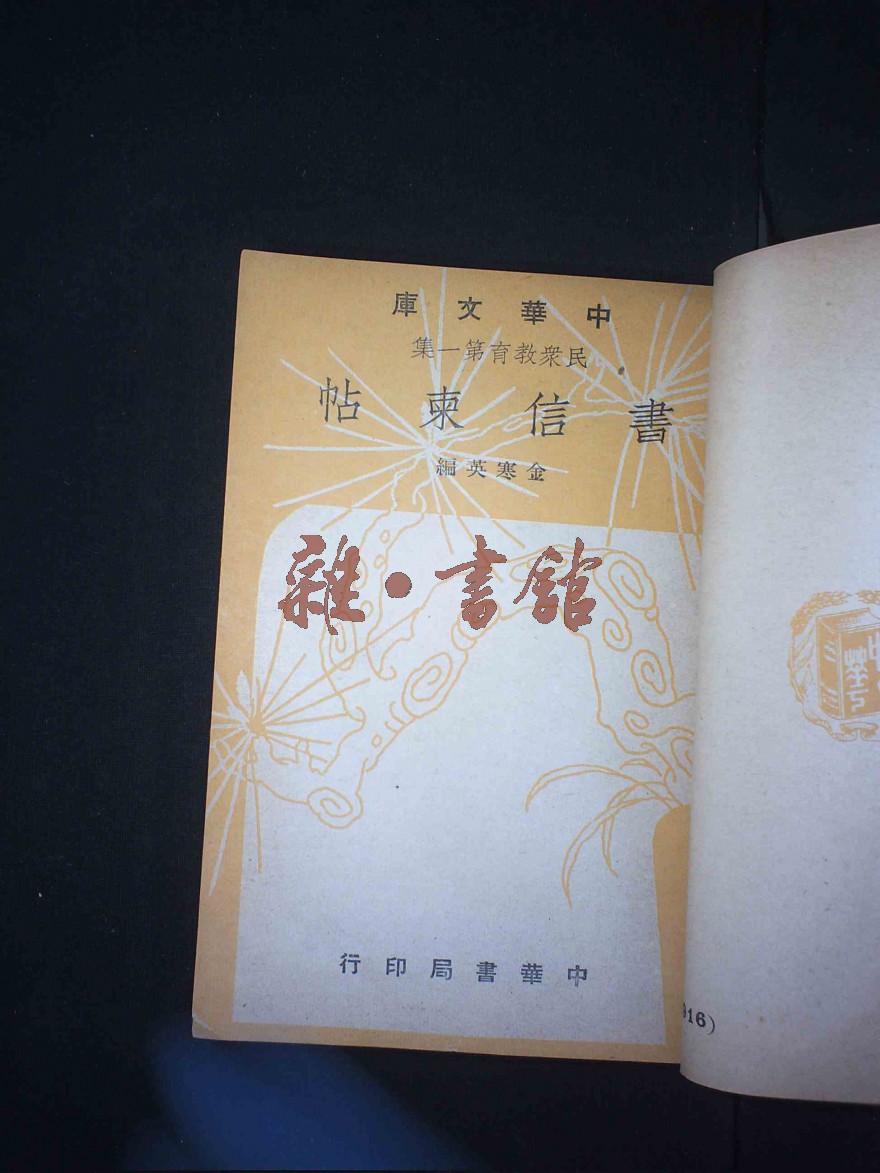 中華文庫
民衆教育第一集
書信柬帖
金寒英編
雜·書館
中華書局印行
916)
中華